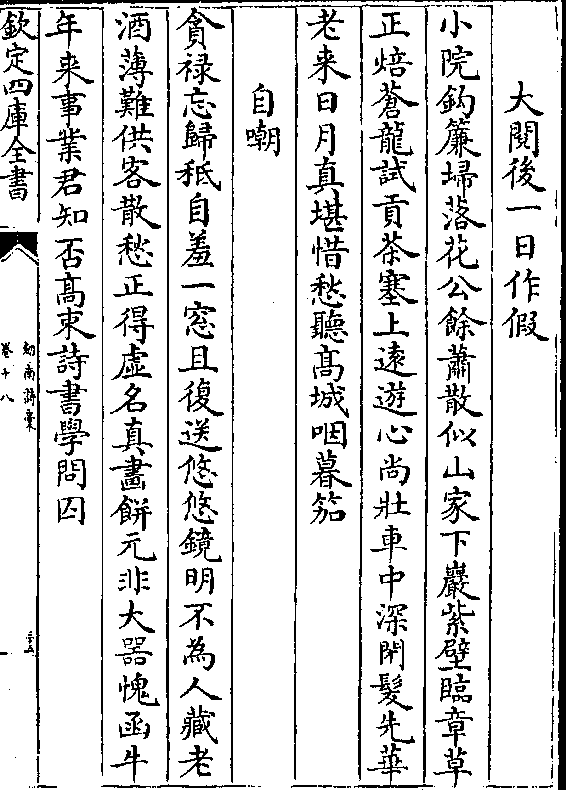 大閱後一日作假
小院鈎簾埽落花公餘蕭散似山家下巖紫壁臨章草
正焙蒼龍試貢茶塞上逺遊心尚壯車中深閉髮先華
老来日月真堪惜愁聽髙城咽暮笳
自嘲
貪禄忘歸秪自羞一窓且復送悠悠鏡明不為人藏老
酒薄難供客散愁正得虚名真畫餅元非大器愧函牛
年来事業君知否髙束詩書學問囚
欽定四庫全書
劒南詩藁
卷十八